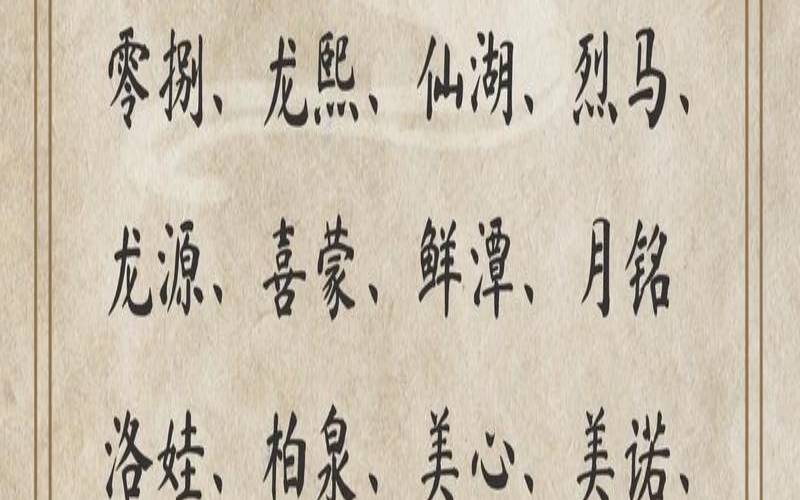 零捌、龙熙、仙湖、烈马、
龙源、喜蒙、鲜潭、月铭
洛娃、柏泉、美心、美诺、